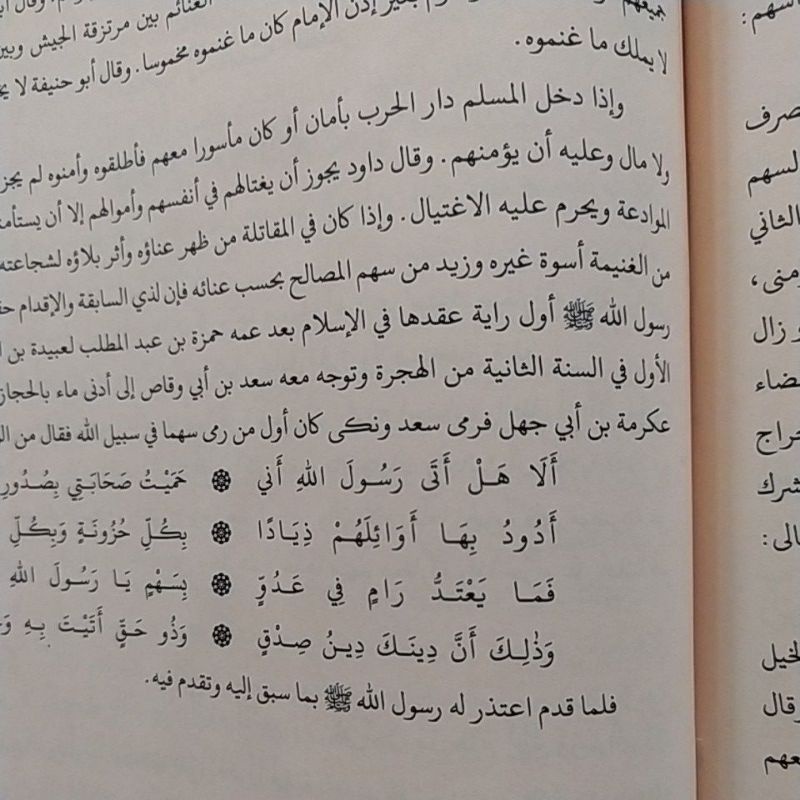 جميعهم
الغنائم بين مرتزقة الجيش وبين
بغير إذن الإمام كان ما غنموه مخموسا. وقال أبو حنيفة لا
لا يملك ما غنموه.
وإذا دخل المسلم دار الحرب بأمان أو كان مأسورا معهم فأطلقوه وأمنوه لم يجز
ولا مال وعليه أن يؤمنهم. وقال داود يجوز أن يغتالهم في أنفسهم وأموالهم إلا أن
الموادعة ويحرم عليه الاغتيال. وإذا كان في المقاتلة من ظهر عناؤه وأثر بلاؤه لشجاعته
من الغنيمة أسوة غيره وزيد من سهم المصالح بحسب عنائه فإن لذي السابقة والإقدام
رسول الله ﷺ أول راية عقدها في الإسلام بعد عمه حمزة بن عبد المطلب لعبيدة بن
الأول في السنة الثانية من الهجرة وتوجه معه سعد بن أبي وقاص إلى أدنى ماء بالحجاز
عكرمة بن أبي جهل فرمى سعد ونكى كان أول من رمى سهما في سبيل الله فقال من
أَلَا هَـلْ أَتَى رَسُـولَ اللهِ أَني ۞ حَمَيْتُ صَحَابَتِي بِصُـدُورِ
أَدُودُ بِهَا أَوَائِلَهُـمْ ذِيَادًا ۞ بِكُلِّ حُزُونَةٍ وَبِكُلِّ
فَمَا يَعْتَـدُّ رَامٍ فِي عَـدُوٍّ ۞ بِسَهْمٍ يَـا رَسُـولَ اللهِ
وَذٰلِـكَ أَنَّ دِينَـكَ دِيـنُ صِـدْقٍ ۞ وَذُو حَقٍّ أَتَيْتَ بِـهِ
فلما قدم اعتذر له رسول الله ﷺ بما سبق إليه وتقدم فيه.
السهم
الثاني
و زال
لخيل